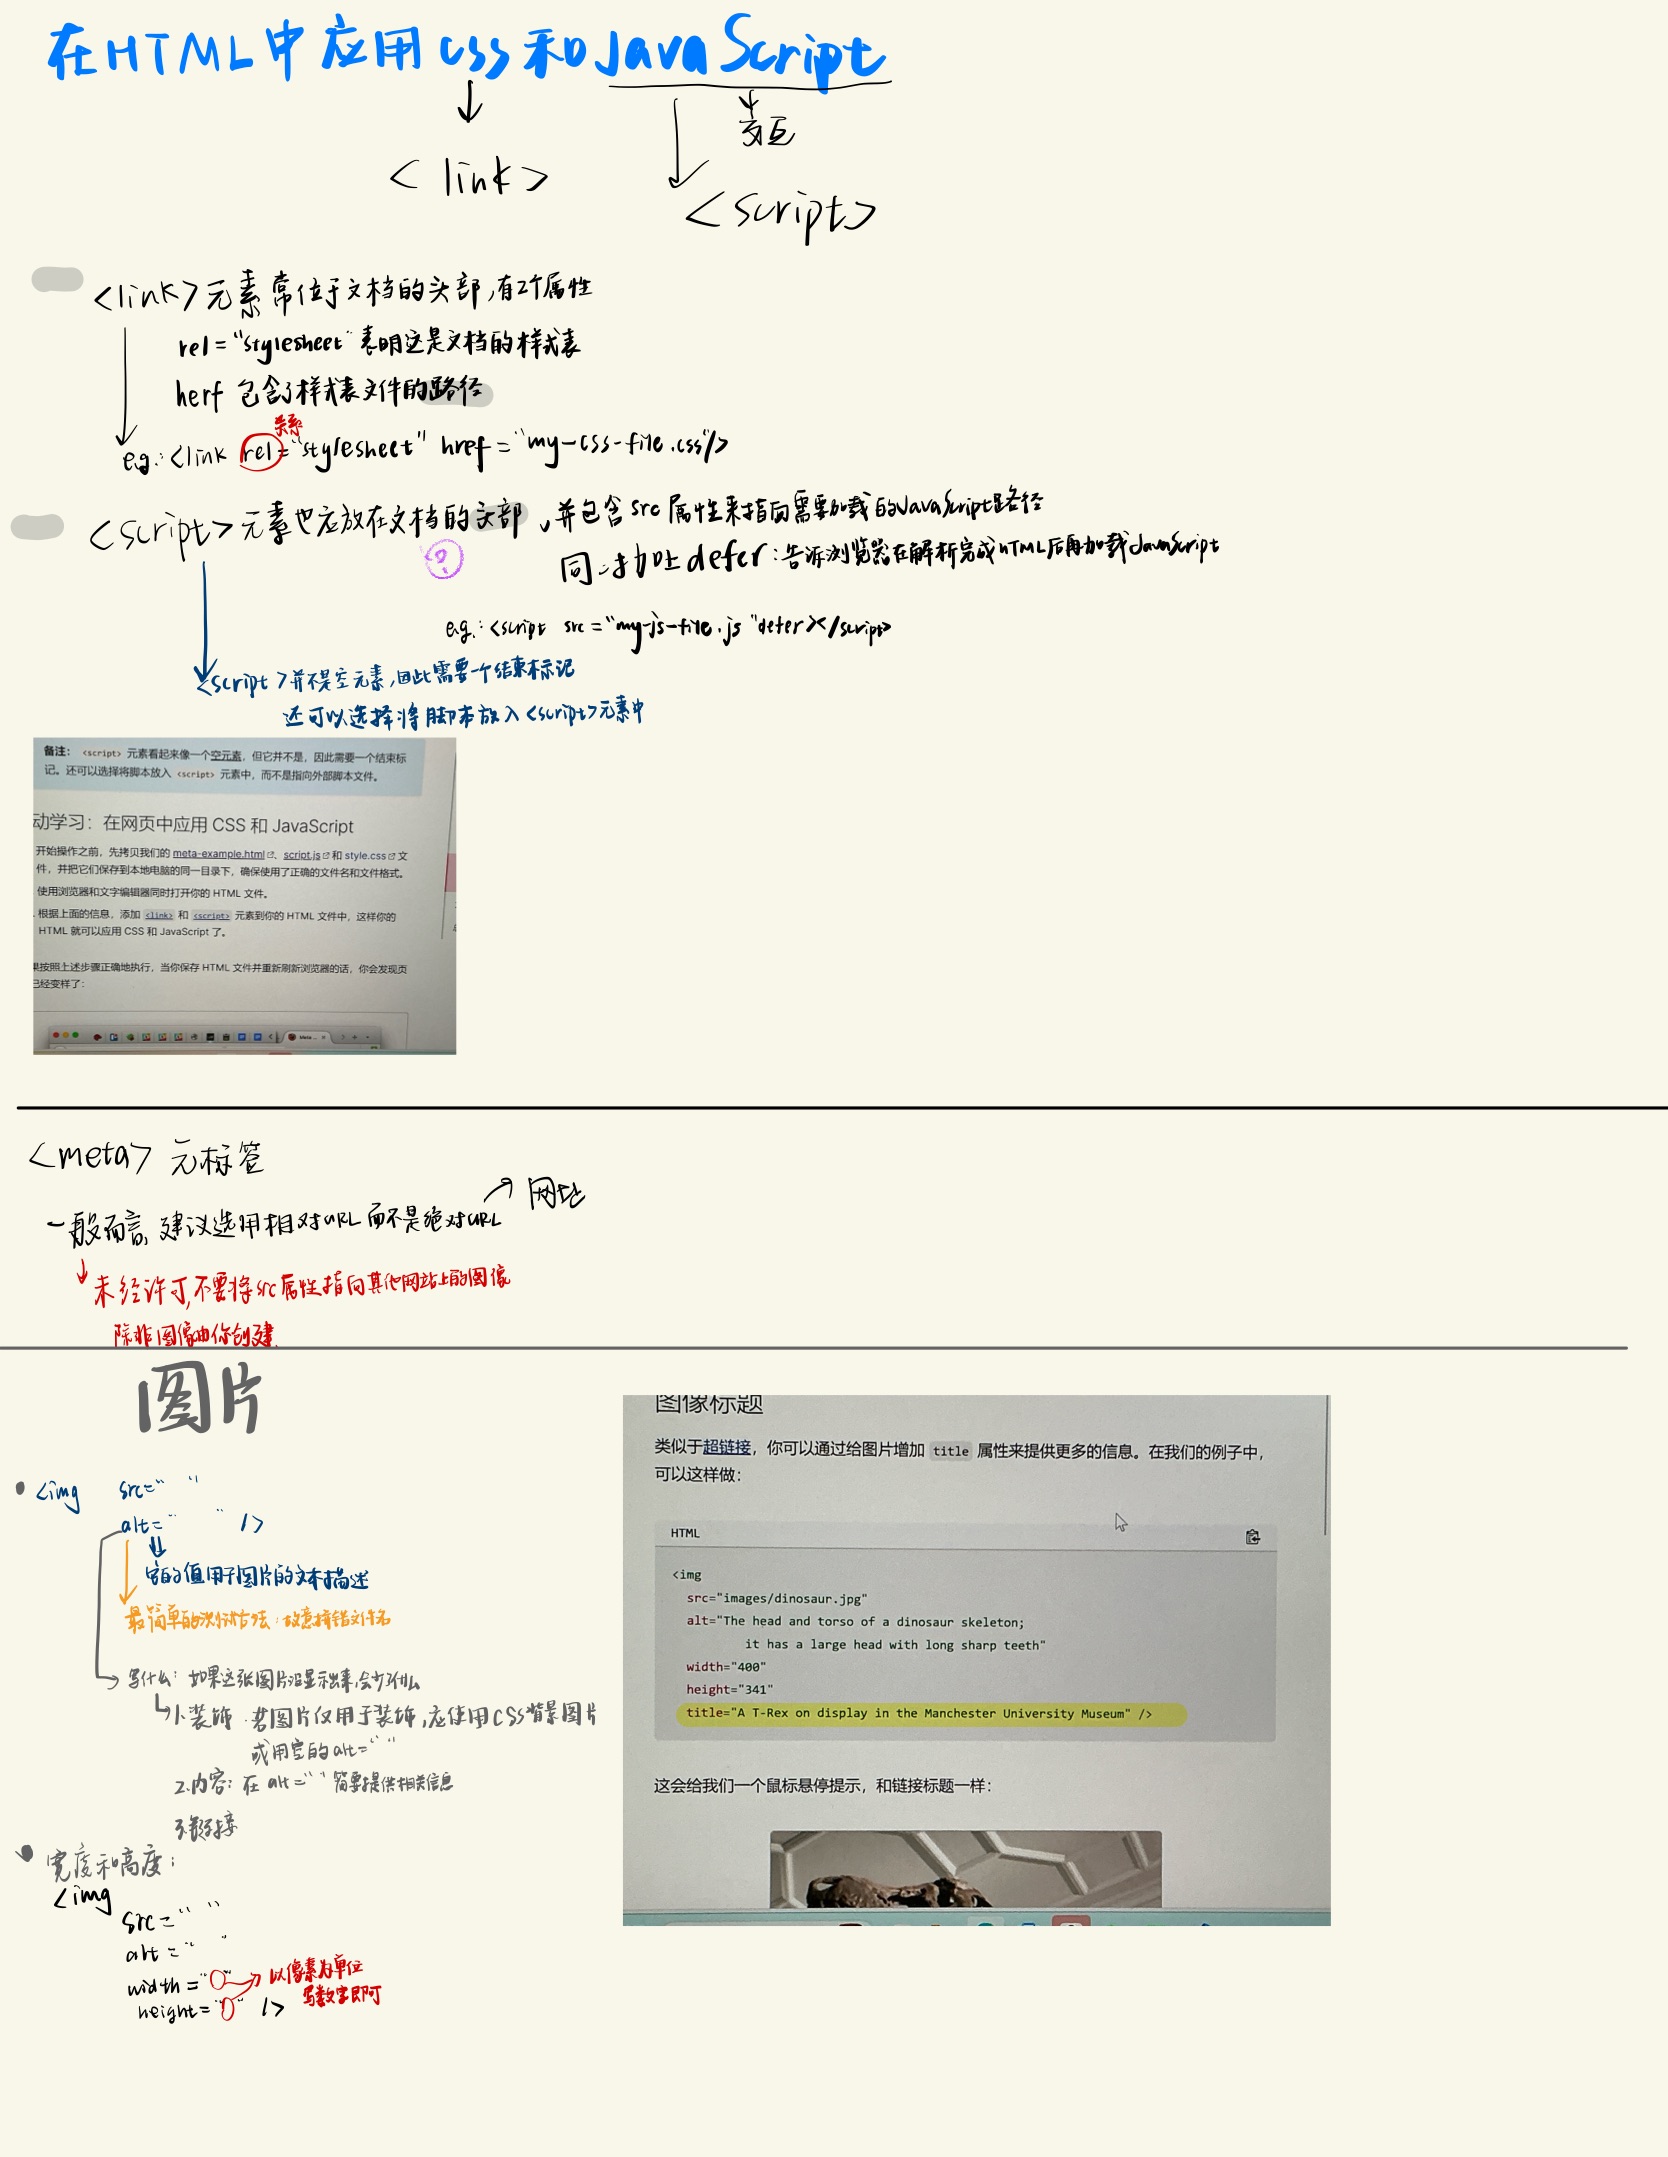 在HTML中应用CSS和JavaScript
交互
<link>
<script>
<link>元素常位于文档的头部,有2个属性
rel="stylesheet"表明这是文档的样式表
herf 包含了样式表文件的路径
关系
e.g.:<link rel="stylesheet" href="my-css-file.css"/>
<script>元素也应放在文档的头部,并包含src属性来指向需要加载的JavaScript路径
?
同时加上defer:告诉浏览器在解析完成HTML后再加载JavaScript
e.g.:<script src="my-js-file.js"defer></script>
<script>并不是空元素,因此需要一个结束标记
还可以选择将脚本放入<script>元素中
备注: <script> 元素看起来像一个空元素,但它并不是,因此需要一个结束标
记。还可以选择将脚本放入 <script> 元素中,而不是指向外部脚本文件。
动学习:在网页中应用 CSS 和 JavaScript
开始操作之前,先拷贝我们的 meta-example.html、script.js 和 style.css 文
件,并把它们保存到本地电脑的同一目录下,确保使用了正确的文件名和文件格式。
使用浏览器和文字编辑器同时打开你的 HTML 文件。
根据上面的信息,添加 <link> 和 <script> 元素到你的 HTML 文件中,这样你的
HTML 就可以应用 CSS 和 JavaScript 了。
果按照上述步骤正确地执行,当你保存 HTML 文件并重新刷新浏览器的话,你会发现页
已经变样了:
Meta
<meta> 元标签
网址
一般而言,建议选用相对URL而不是绝对URL
未经许可,不要将src属性指向其他网站上的图像
除非图像由你创建
图片
<img src=" "
alt=" " />
它的值用于图片的文本描述
最简单的测试方法:故意拼错文件名
写什么:如果这张图片没显示出来,会少了什么
1.装饰.若图片仅用于装饰,应使用CSS背景图片
或用空的alt=" "
2.内容:在alt=" "简要提供相关信息
3.链接
宽度和高度:
<img
src=" "
alt=" "
width=" "
以像素为单位
写数字即可
height=" " />
图像标题
类似于超链接,你可以通过给图片增加 title 属性来提供更多的信息。在我们的例子中,
可以这样做:
HTML
<img
src="images/dinosaur.jpg"
alt="The head and torso of a dinosaur skeleton;
it has a large head with long sharp teeth"
width="400"
height="341"
title="A T-Rex on display in the Manchester University Museum" />
这会给我们一个鼠标悬停提示,和链接标题一样: